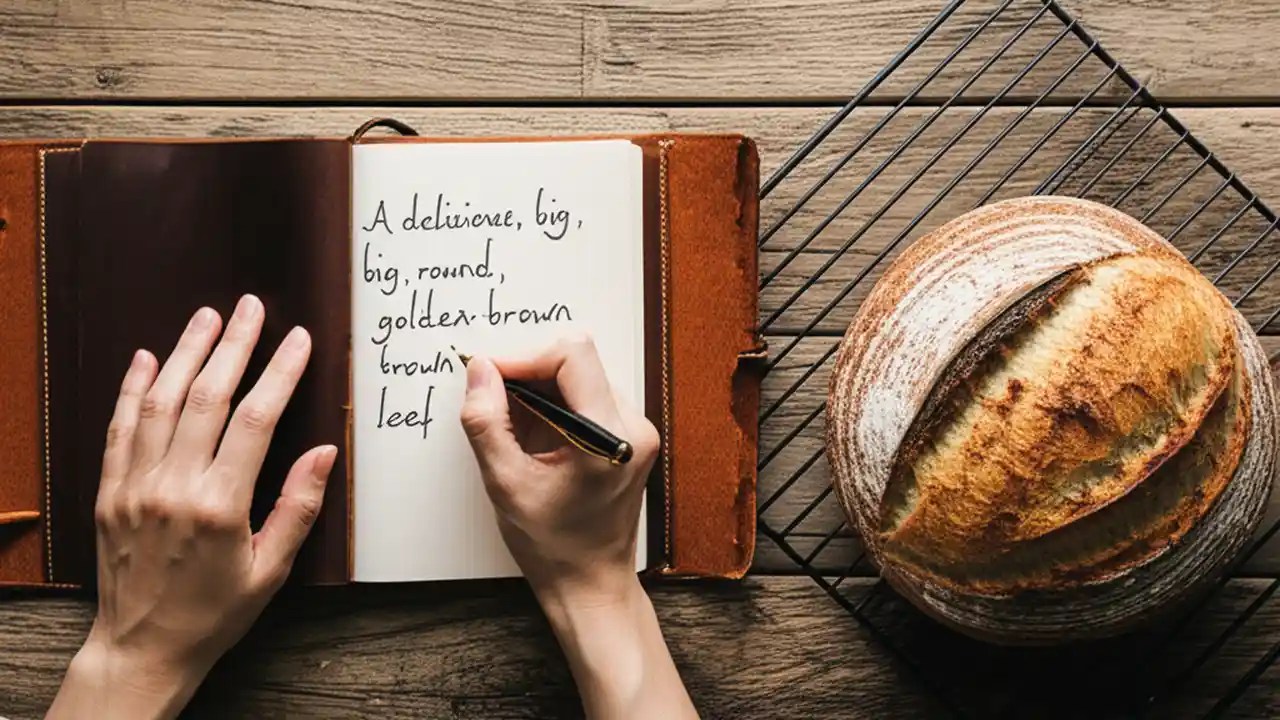 A deliciose, big,
big, round,
golden-brown
brown
leef